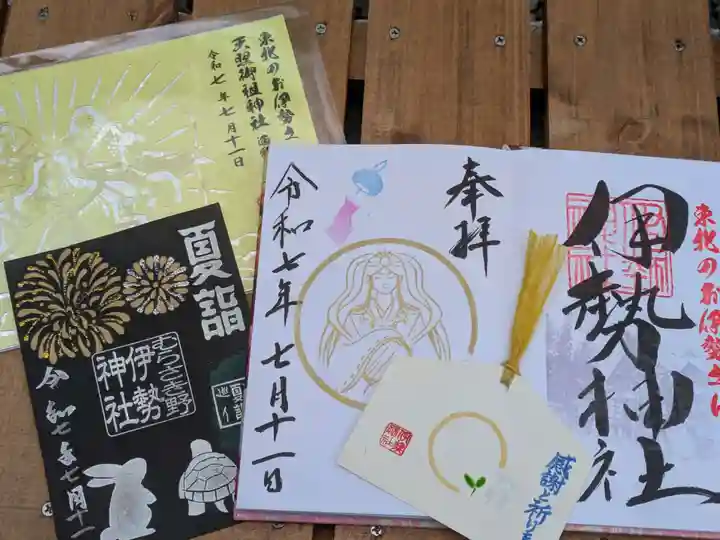 東北のお伊勢さ
天照御祖神社
令和七年七月十一日
夏詣
むらさき野
伊勢
神社
夏詣
巡り
令和七年七月十一
奉拝
令和七年七月十一日
東北のお伊勢さま
伊勢神社
感謝と祈り